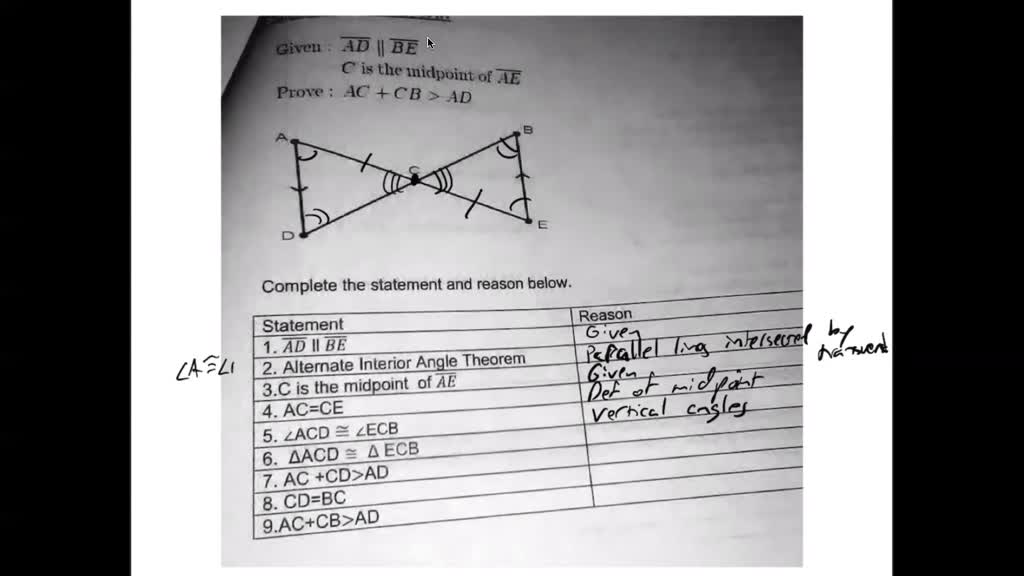 Given : AD || BE
C is the midpoint of AE
Prove : AC + CB > AD
A
B
C
D
E
Complete the statement and reason below.
Statement
Reason
1. AD || BE
Given
2. Alternate Interior Angle Theorem
Parallel lines intersected by
∠A≅∠
3.C is the midpoint of AE
Given
4. AC=CE
Def of midpoint
5. ∠ACD ≅ ∠ECB
vertical angles
6. ΔACD ≅ Δ ECB
7. AC +CD>AD
8. CD=BC
9.AC+CB>AD